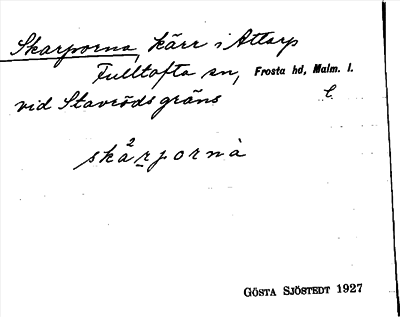 Skarporna, kärr i Attarp
Fulltofta sn, Frosta hd, Malm. l.
vid Stavröds gräns
l.
skårpornà
GÖSTA SJÖSTEDT 1927